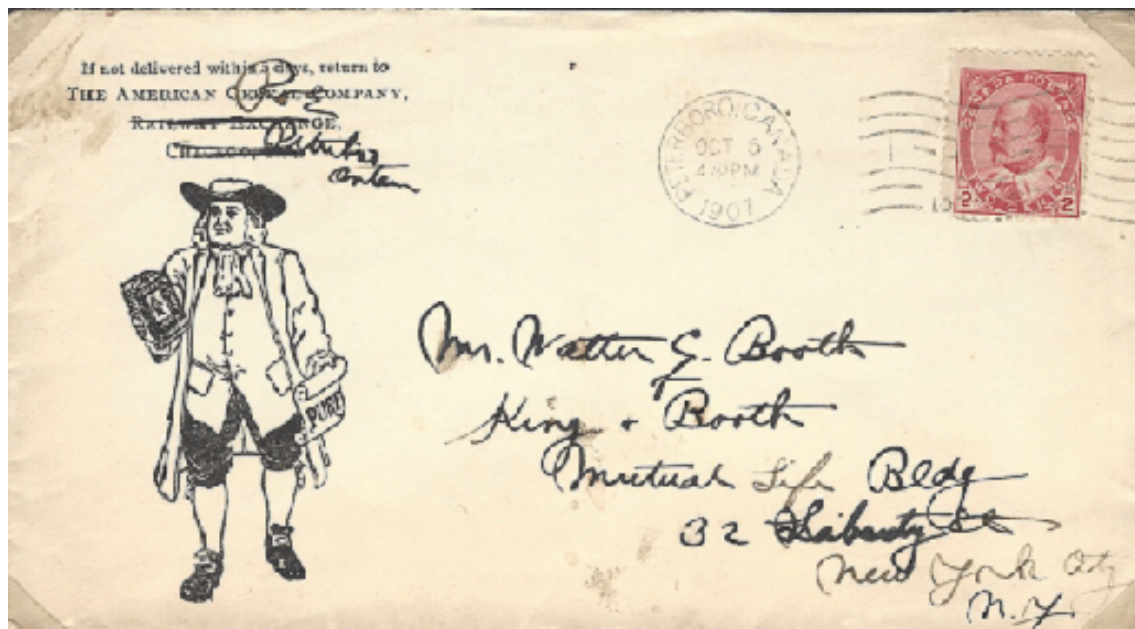 If not delivered within 5 days, return to
THE AMERICAN CEREAL COMPANY,
RAILWAY EXCHANGE,
CHICAGO,
Peterboro
PETERBORO, CANADA
OCT 6
PM
1907
CANADA POSTAGE
2 2
PURE
Mr. Walter G. Booth
King & Booth
Mutual Life Bldg
32 Liberty St
New York City
N.Y.